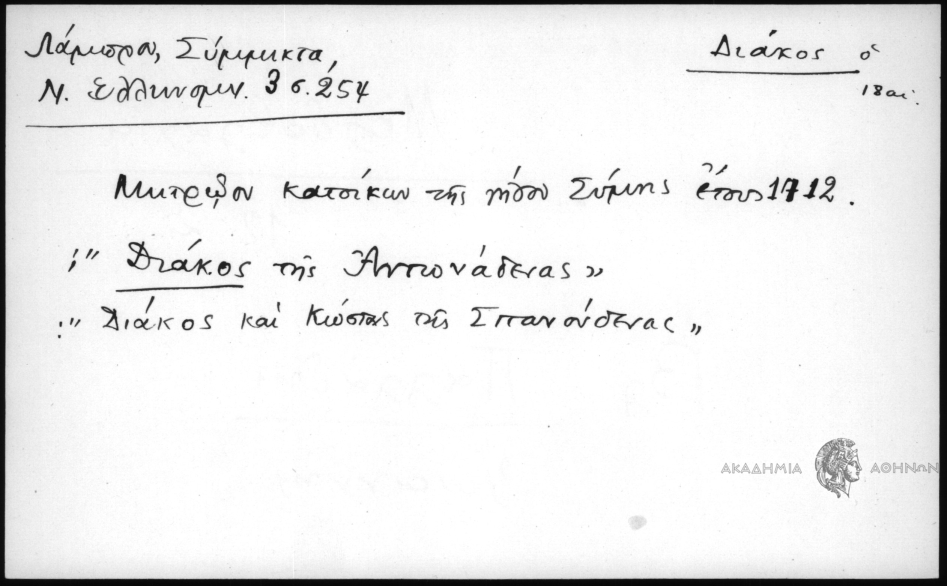 Λάμπρου, Σύμμικτα,
Ν. Ελληνομν. 3 σ. 254
Διάκος ὁ
18 αι.
Μητρῷον κατοίκων τῆς νήσου Σύμης ἔτους 1712.
:" Διάκος τῆς Ἀντωνάδενας"
:" Διάκος καὶ Κώστας τῆς Σπανούδενας"
ΑΚΑΔΗΜΙΑ ΑΘΗΝΩΝ